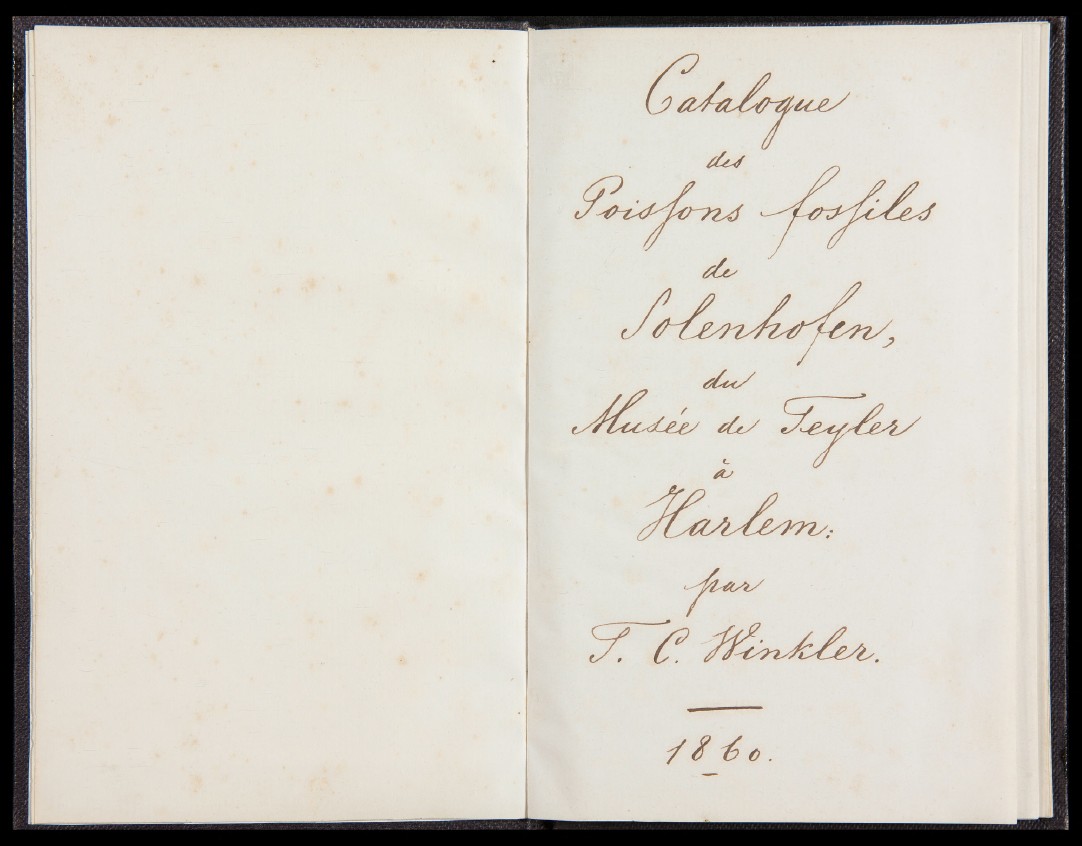 Catalogue
des
Poisſons fosſiles
de
Solenhofen,
du
Musée de Teyler
à
Harlem:
par
T. C. Winkler.
1860.